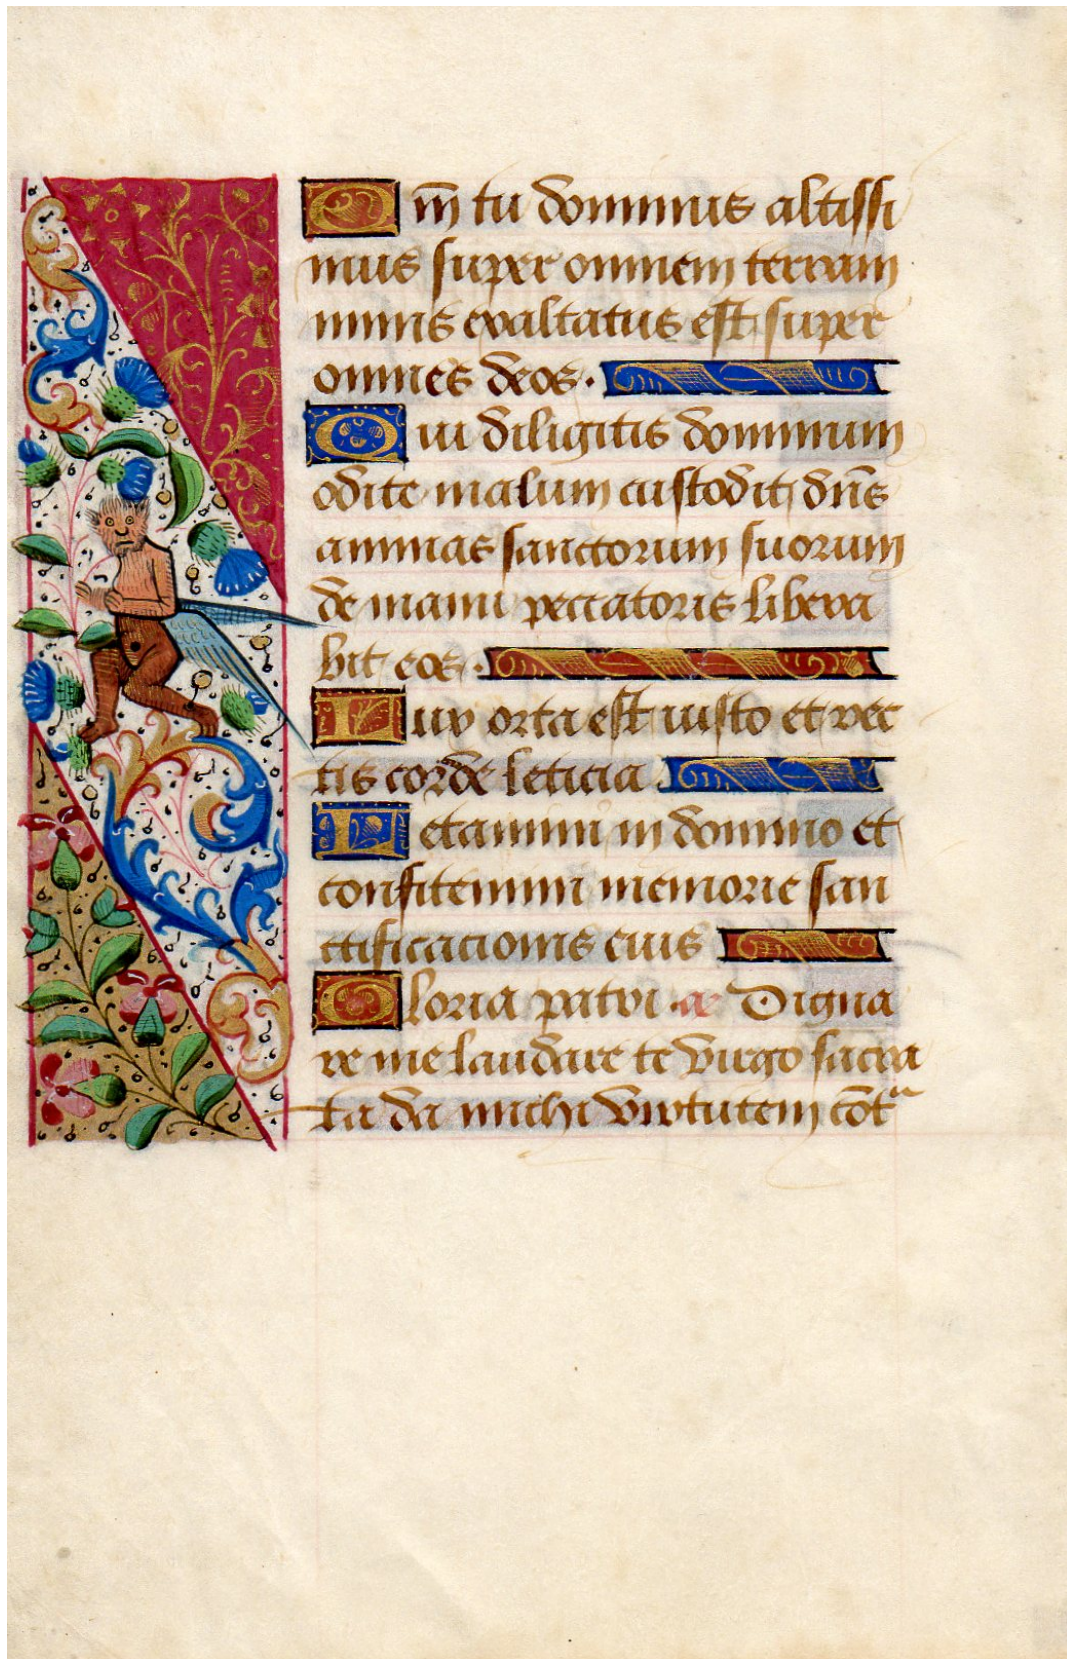 Qm̄ tu dominus altissi
mus super omnem terram
nimis exaltatus est super
omnes deos.
Qui diligitis dominum
odite malum custodit dn̄s
animas sanctorum suorum
de manu peccatoris libera
bit eos.
Lux orta est iusto et rec
tis corde leticia
Letamini in domino et
confitemini memorie san
ctificacionis eius
Gloria patri. ae Digna
re me laudare te virgo sacra
ta da michi virtutem cōtᵃ